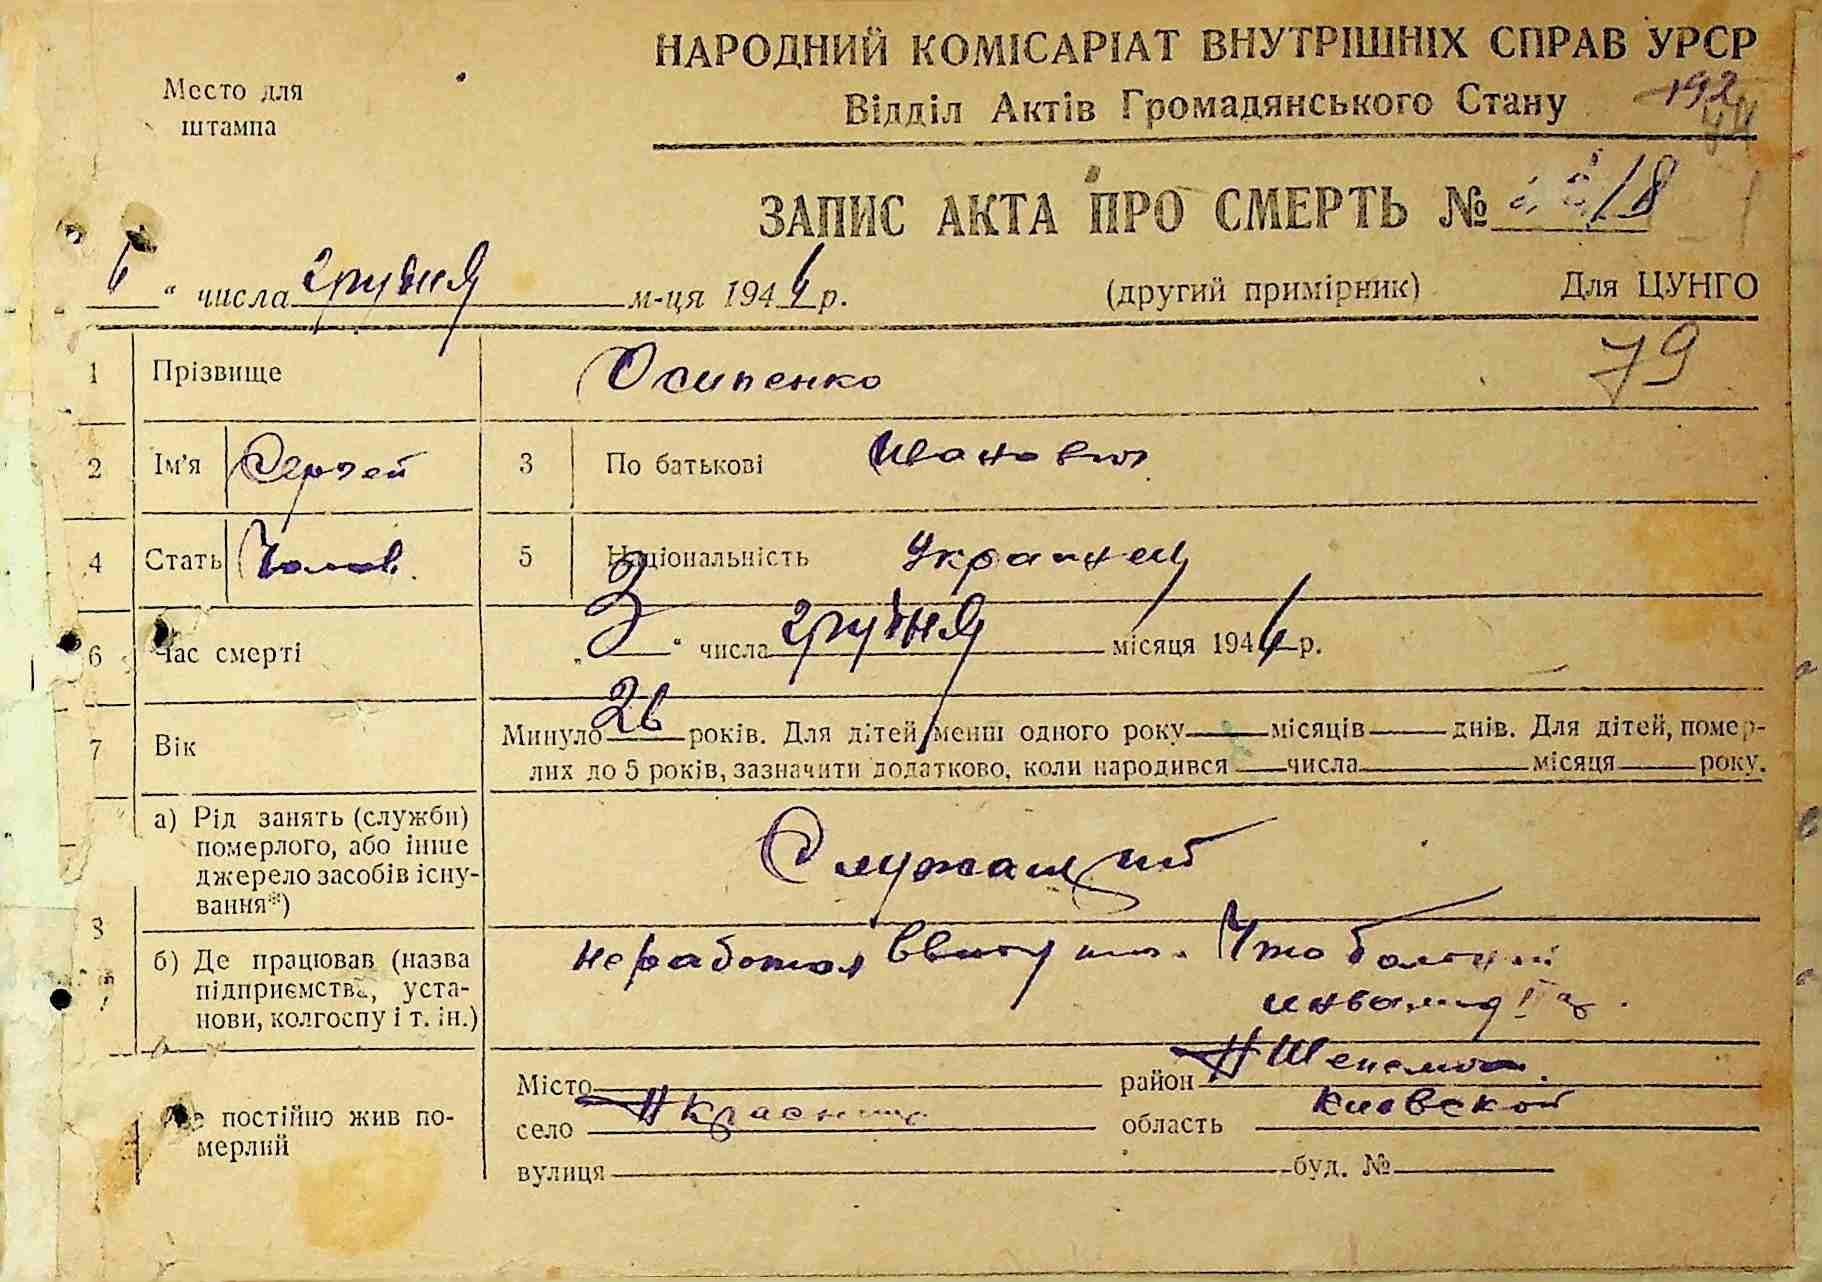 НАРОДНИЙ КОМІСАРІАТ ВНУТРІШНІХ СПРАВ УРСР
Место для
штампа
Відділ Актів Громадянського Стану
192
ЗАПИС АКТА ПРО СМЕРТЬ № 18
6 " числа грудня м-ця 1944 р. (другий примірник) Для ЦУНГО
79
1 Прізвище Осипенко
2 Ім'я Сергей 3 По батькові Иванович
4 Стать Чолов. 5 Національність Украинец
6 Час смерті „ 3 " числа грудня місяця 1944 р.
7 Вік Минуло 26 років. Для дітей менш одного року місяців днів. Для дітей, помер-
лих до 5 років, зазначити додатково, коли народився числа місяця року.
8 а) Рід занять (служби)
померлого, або інше
джерело засобів існу-
вання*)
Служащий
б) Де працював (назва
підприємства, уста-
нови, колгоспу і т. ін.)
не работал ввиду Что
инвалид
Де постійно жив по-
мерлий
Місто район
село область Киевской
вулиця буд. №